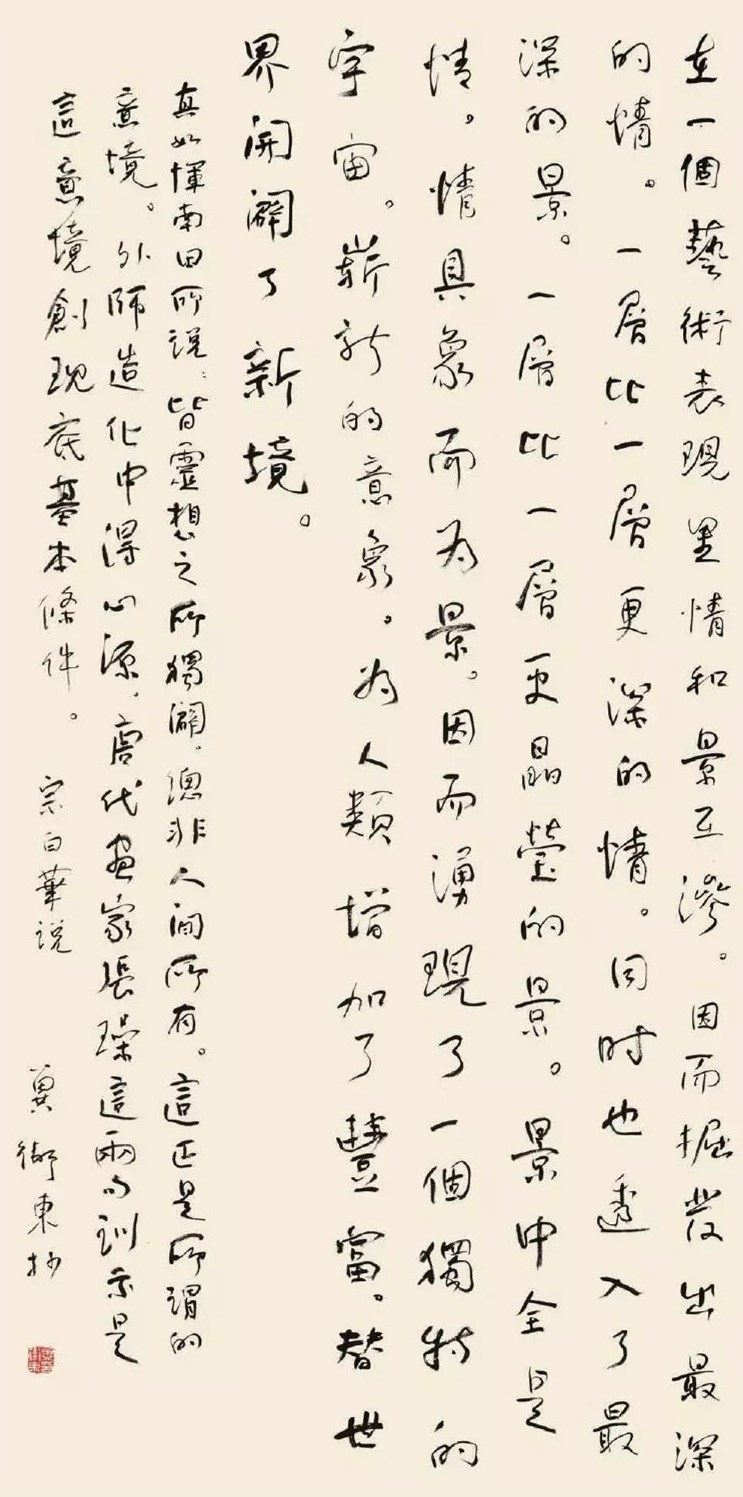 在一個藝術表現里情和景互滲。因而掘發出最深
的情。一層比一層更深的情。同時也透入了最
深的景。一層比一層更晶瑩的景。景中全是
情。情具象而為景。因而湧現了一個獨特的
宇宙。嶄新的意象。為人類增加了豐富。替世
界開闢了新境。
真如惲南田所說：皆靈想之所獨闢。總非人間所有。這正是所謂的
意境。外師造化中得心源。唐代畫家張璪這兩句訓示是
這意境創現底基本條件。 宗白華說
吳衛東抄